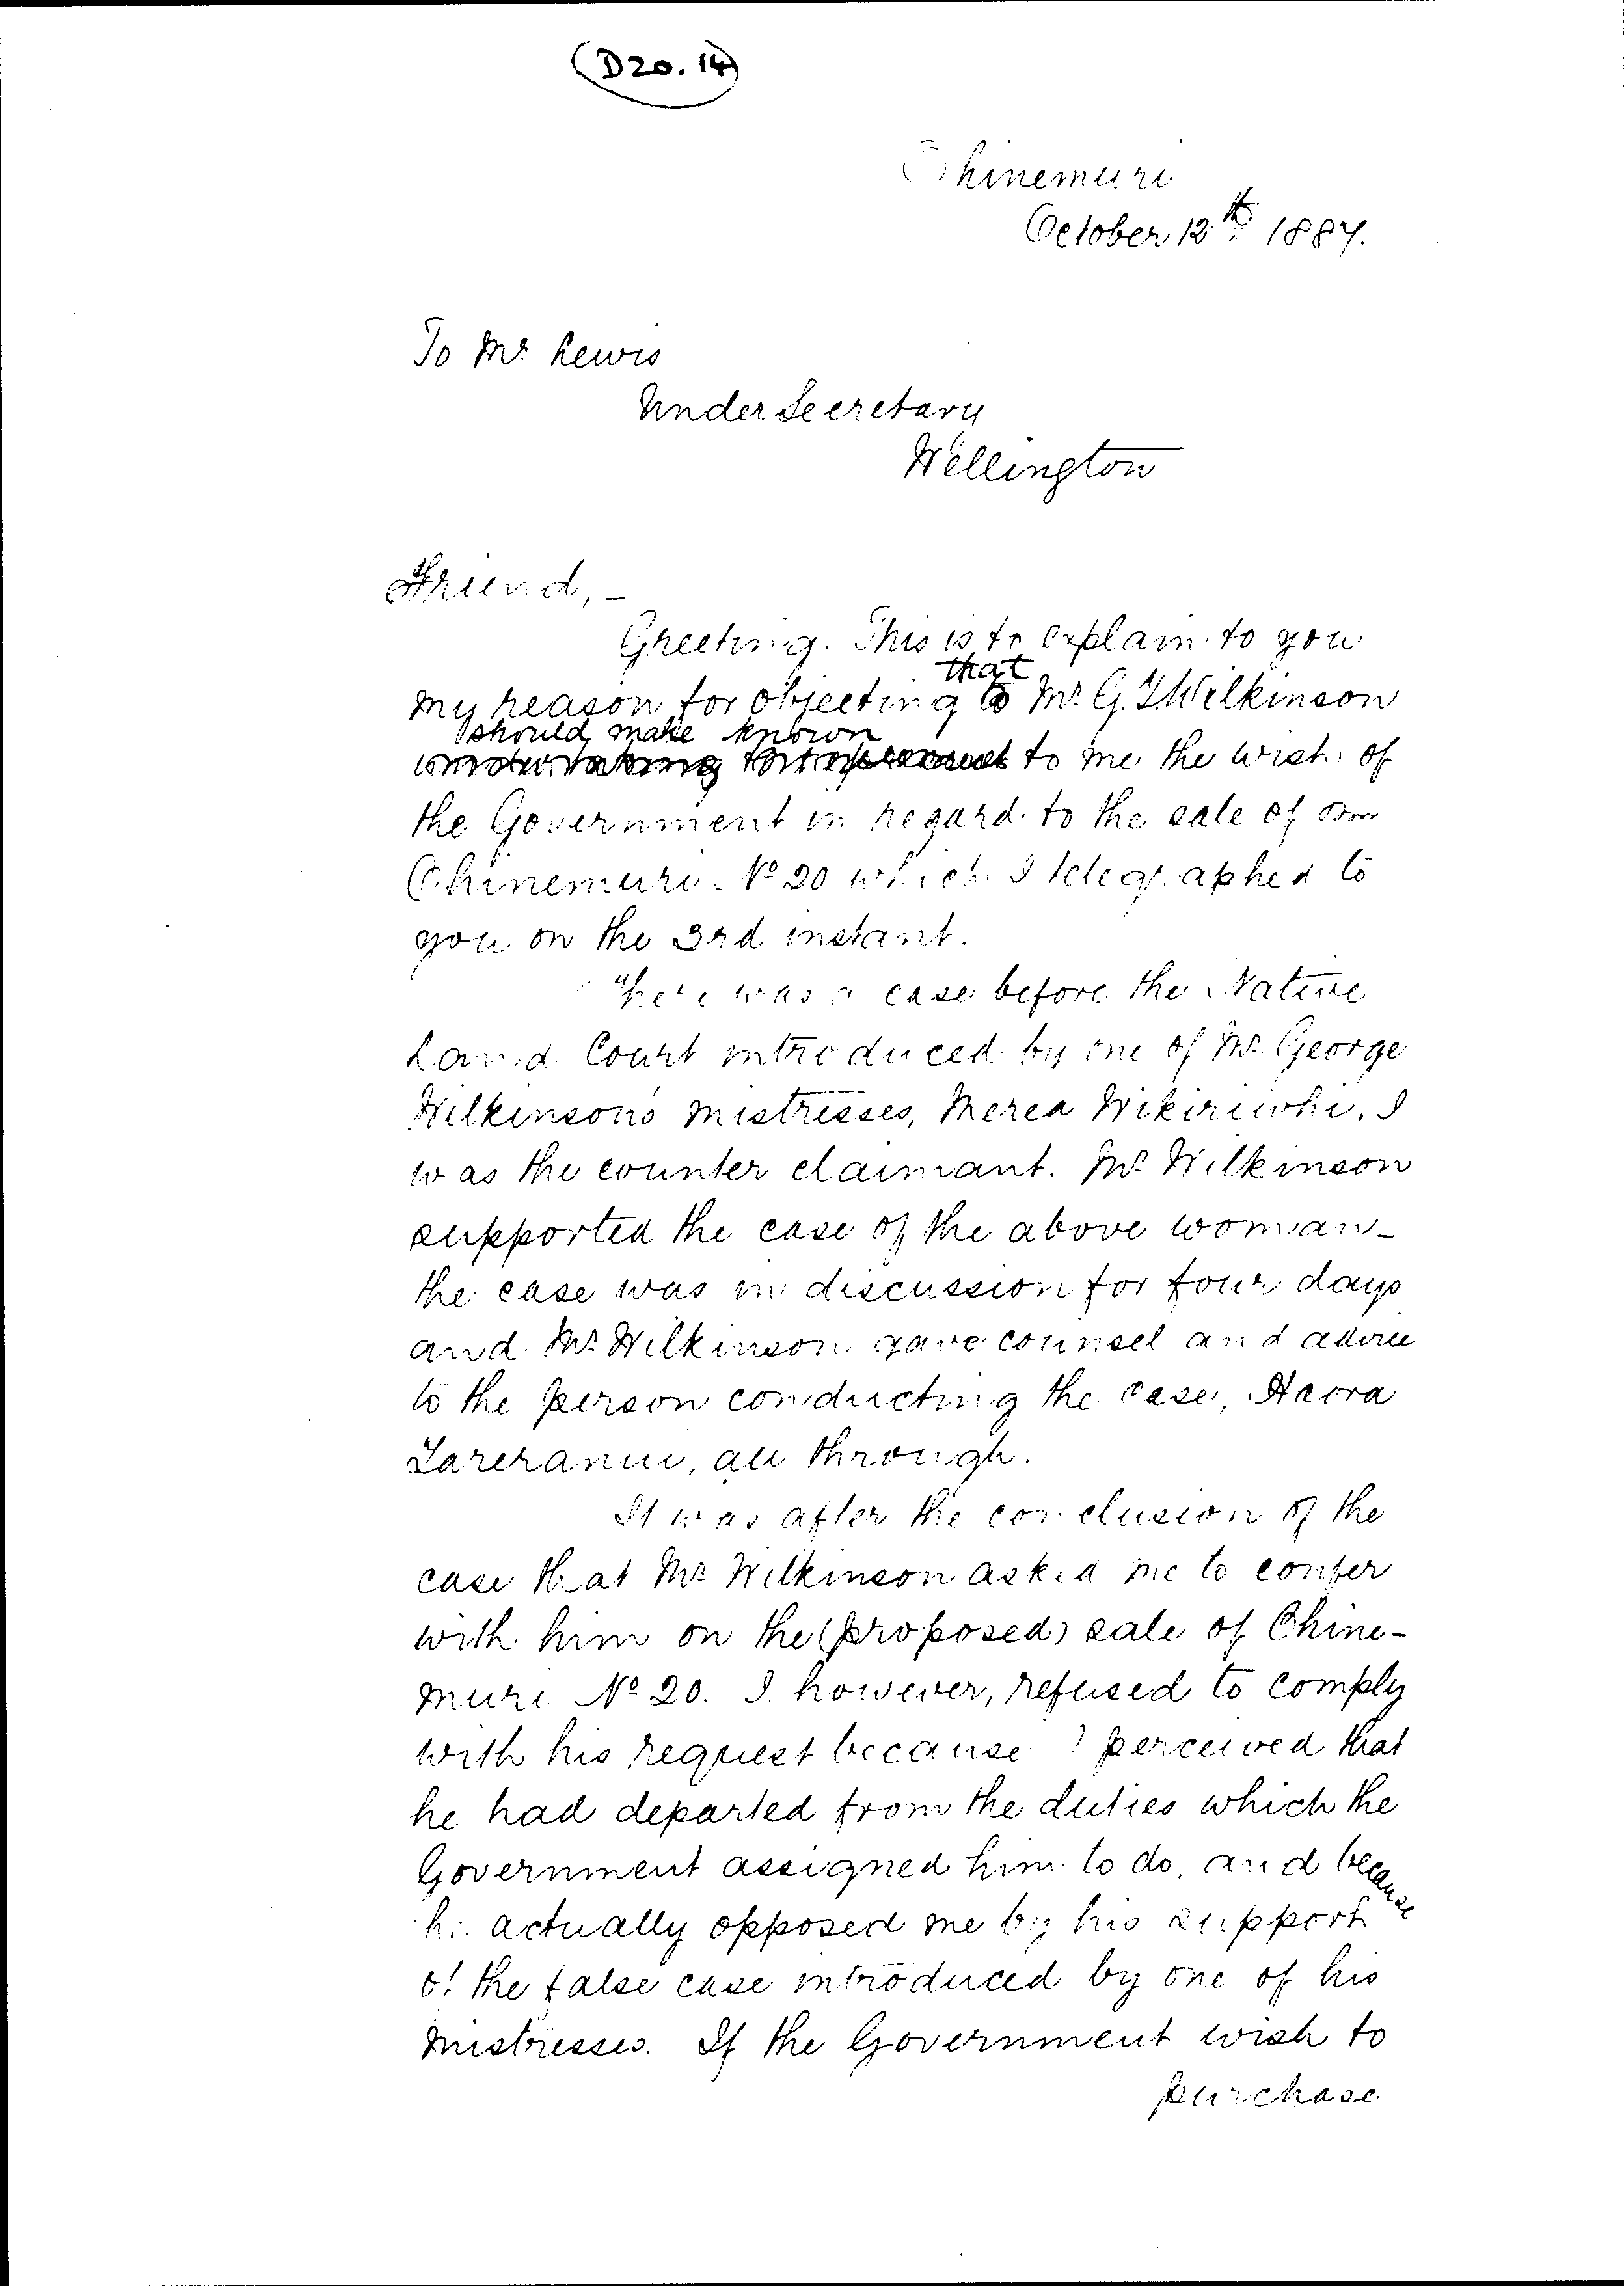 (D20.14)
Ohinemuri
October 12th 1887.
To Mr Lewis
Under Secretary
Wellington
Friend, –
Greeting. This is to explain to you
that
my reason for objecting to Mr G. T Wilkinson
should make known
to me the wish of
the Government in regard to the sale of
Ohinemuri No 20 which I telegraphed to
you on the 3rd instant.
There was a case before the Native
Land Court introduced by one of Mr George
Wilkinson's mistresses, Merea Wikiriwhi. I
was the counter claimant. Mr Wilkinson
supported the case of the above woman –
the case was in discussion for four days
and Mr Wilkinson gave counsel and advice
to the person conducting the case, Haora
Tareranui, all through.
It was after the conclusion of the
case that Mr Wilkinson asked me to confer
with him on the (proposed) sale of Ohine-
muri No 20. I however, refused to comply
with his request because I perceived that
he had departed from the duties which the
Government assigned him to do, and because
he actually opposed me by his support
of the false case introduced by one of his
mistresses. If the Government wish to
purchase